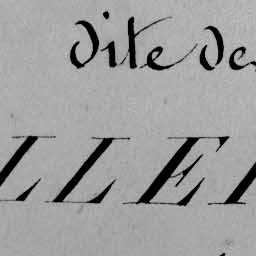 dite de
LLE